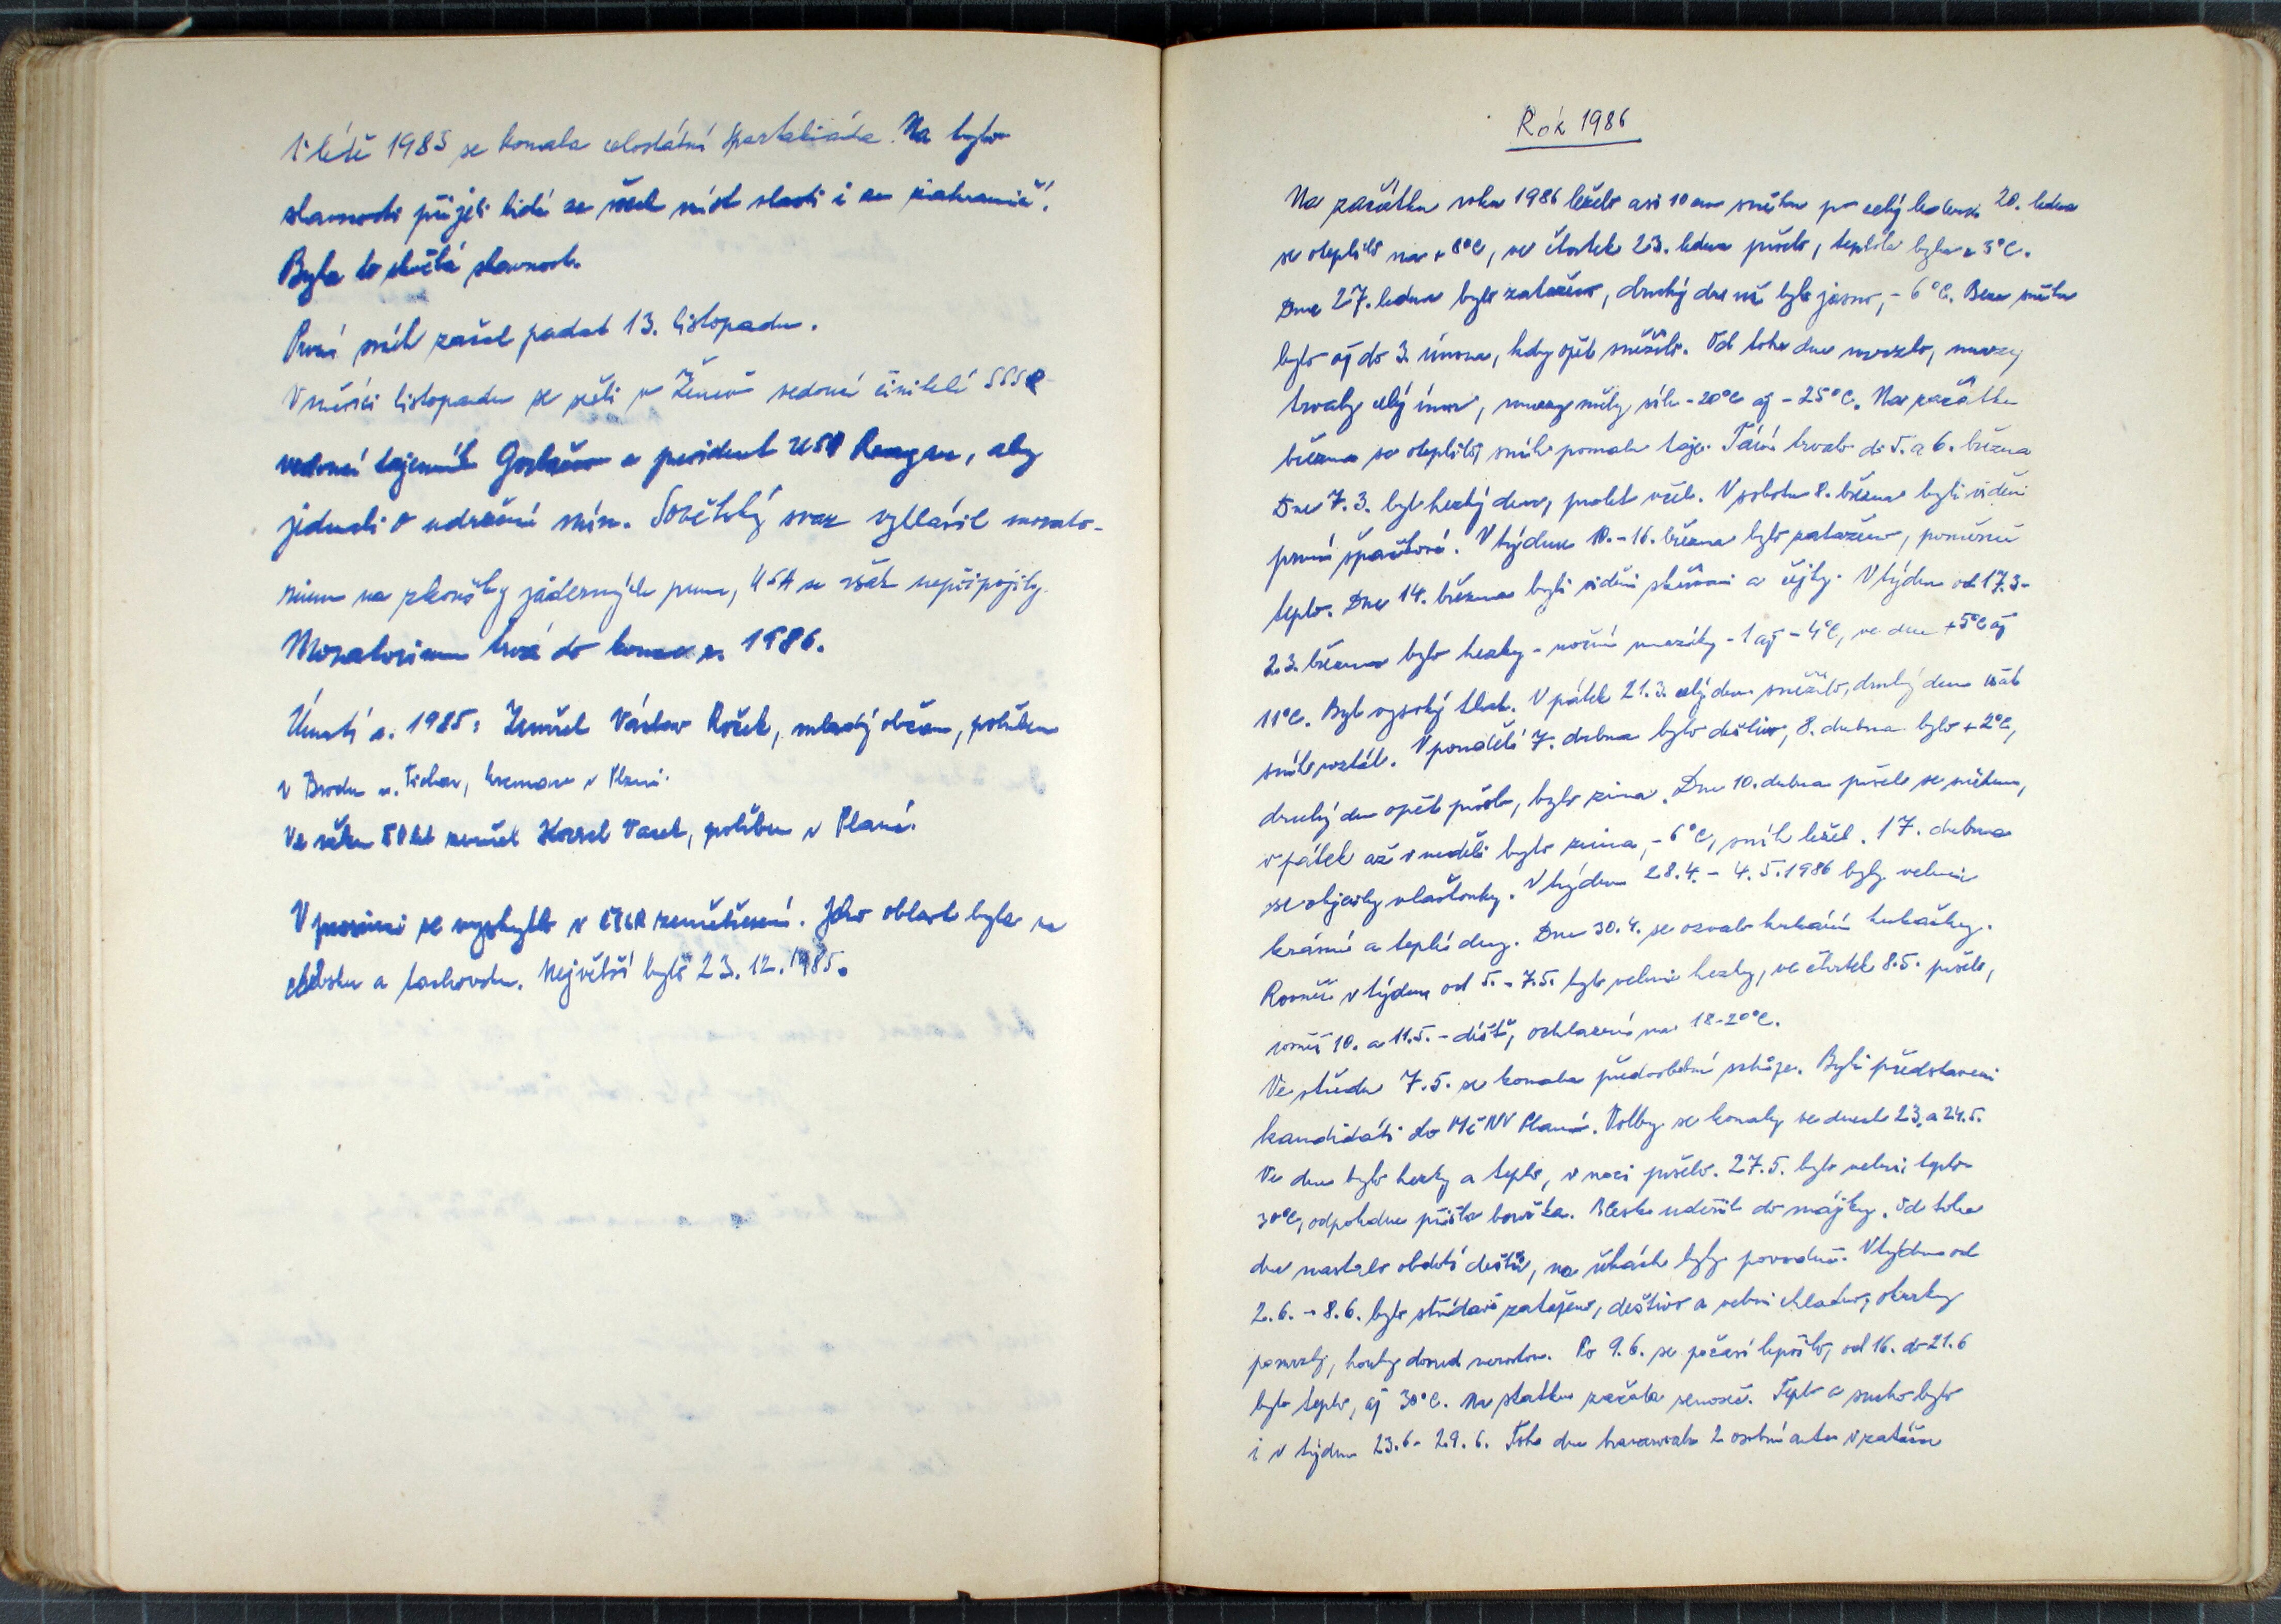 V létě 1985 se konala celostátní spartakiáda. Na tyto
slavnosti přijeli lidé ze všech míst vlasti i ze zahraničí.
Byla to skvělá slavnost.
První sníh začal padat 13. listopadu.
V měsíci listopadu se sešli v Ženevě vedoucí činitelé SSSR
vedoucí tajemník Gorbačov a president USA Reagan, aby
jednali o udržení míru. Sovětský svaz vyhlásil morato-
rium na zkoušky jaderných pum, USA se však nepřipojily.
Moratorium trvá do konce r. 1986.
Úmrtí r. 1985: Zemřel Václav Roček, mladý občan, pohřben
v Brodu n. Tichou, kremace v Plzni.
Ve věku let zemřel Karel Vacek, pohřben v Plané.
V prosinci se vyskytlo v ČSSR zemětřesení. Jeho oblast byla na
chebsku a tachovsku. Největší bylo 23. 12. 1985.
Rok 1986
Na začátku roku 1986 leželo asi 10 cm sněhu po celý leden. 20. ledna
se oteplilo na +8°C, ve čtvrtek 23. ledna pršelo, teplota byla +3°C.
Dne 27. ledna bylo zataženo, druhý den už bylo jasno, -6°C. Beze sněhu
bylo až do 3. února, kdy opět sněžilo. Od toho dne mrzlo, mrazy
trvaly celý únor, mrazy měly sílu -20°C až -25°C. Na začátku
března se oteplilo, sníh pomalu taje. Tání trvalo do 5. a 6. března
Dne 7. 3. byl hezký den, prolet včel. V sobotu 8. března byli viděni
první špačkové. V týdnu 10.-16. března bylo zataženo, poměrně
teplo. Dne 14. března byli viděni skřivani a čejky. V týdnu od 17.3-
23. března bylo hezky - noční mrazíky -1 až -4°C, ve dne +5°C až
11°C. Byl vysoký tlak. V pátek 21.3. celý den sněžilo, druhý den však
sníh roztál. V pondělí 7. dubna bylo deštivo, 8. dubna bylo +2°C,
druhý den opět pršelo, byla zima. Dne 10. dubna pršelo se sněhem,
v pátek až v neděli byla zima, -6°C, sníh ležel. 17. dubna
se objevily vlaštovky. V týdnu 28.4. - 4.5.1986 byly velmi
krásné a teplé dny. Dne 30.4. se ozvalo kukání kukačky.
Rovněž v týdnu od 5. - 7.5. bylo velmi hezky, ve čtvrtek 8.5. pršelo,
rovněž 10. a 11.5. - déšť, ochlazení na 18-20°C.
Ve středu 7.5. se konala předvolební schůze. Byli představeni
kandidáti do MěNV Planá. Volby se konaly ve dnech 23. a 24.5.
Ve dne bylo hezky a teplo, v noci pršelo. 27.5. bylo velmi teplo
30°C, odpoledne přišla bouřka. Blesk udeřil do májky. Od toho
dne nastalo období dešťů, na řekách byly povodně. V týdnu od
2.6. - 8.6. bylo střídavě zataženo, deštivo a velmi chladno, okurky
pomrzly, houby dosud nerostou. Po 9.6. se počasí lepšilo, od 16. do 21.6
bylo teplo, až 30°C. Na statku začala senoseč. Teplo a sucho bylo
i v týdnu 23.6 - 29.6. Toho dne havarovala 2 osobní auta v zatáčce